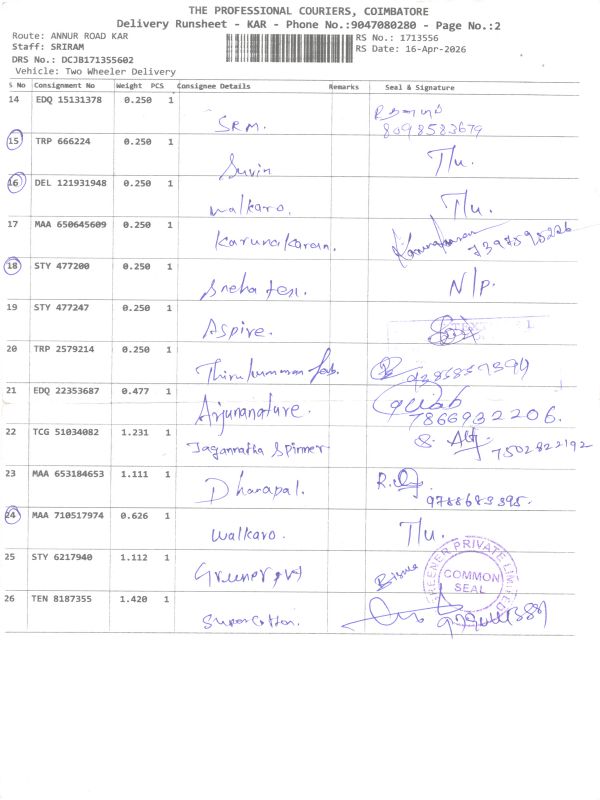 THE PROFESSIONAL COURIERS, COIMBATORE
Delivery Runsheet - KAR - Phone No.:9047080280 - Page No.:2
Route: ANNUR ROAD KAR
RS No.: 1713556
Staff: SRIRAM
RS Date: 16-Apr-2026
DRS No.: DCJB171355602
Vehicle: Two Wheeler Delivery
S No Consignment No Weight PCS Consignee Details Remarks Seal & Signature
14 EDQ 15131378 0.250 1 SRM. 8098583679
15 TRP 666224 0.250 1 Suvin T/u.
16 DEL 121931948 0.250 1 walkaro. T/u.
17 MAA 650645609 0.250 1 Karunakaran. 7397595226
18 STY 477200 0.250 1 Sneha tex. N/p.
19 STY 477247 0.250 1 Aspire.
20 TRP 2579214 0.250 1 Thirukumaran fab.
21 EDQ 22353687 0.477 1 Arjunanature. 7866932206.
22 TCG 51034082 1.231 1 Jagannatha Spinner 7502822192
23 MAA 653184653 1.111 1 Dhanapal. 9788683395.
24 MAA 710517974 0.626 1 walkaro. T/u.
25 STY 6217940 1.112 1
GREENER PRIVATE LIMITED
COMMON
SEAL
26 TEN 8187355 1.420 1 Supercotton.